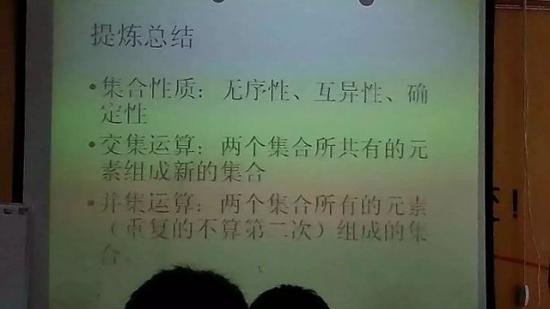 提炼总结
•集合性质：无序性、互异性、确
定性
•交集运算：两个集合所共有的元
素组成新的集合
•并集运算：两个集合所有的元素
（重复的不算第二次）组成的集
合